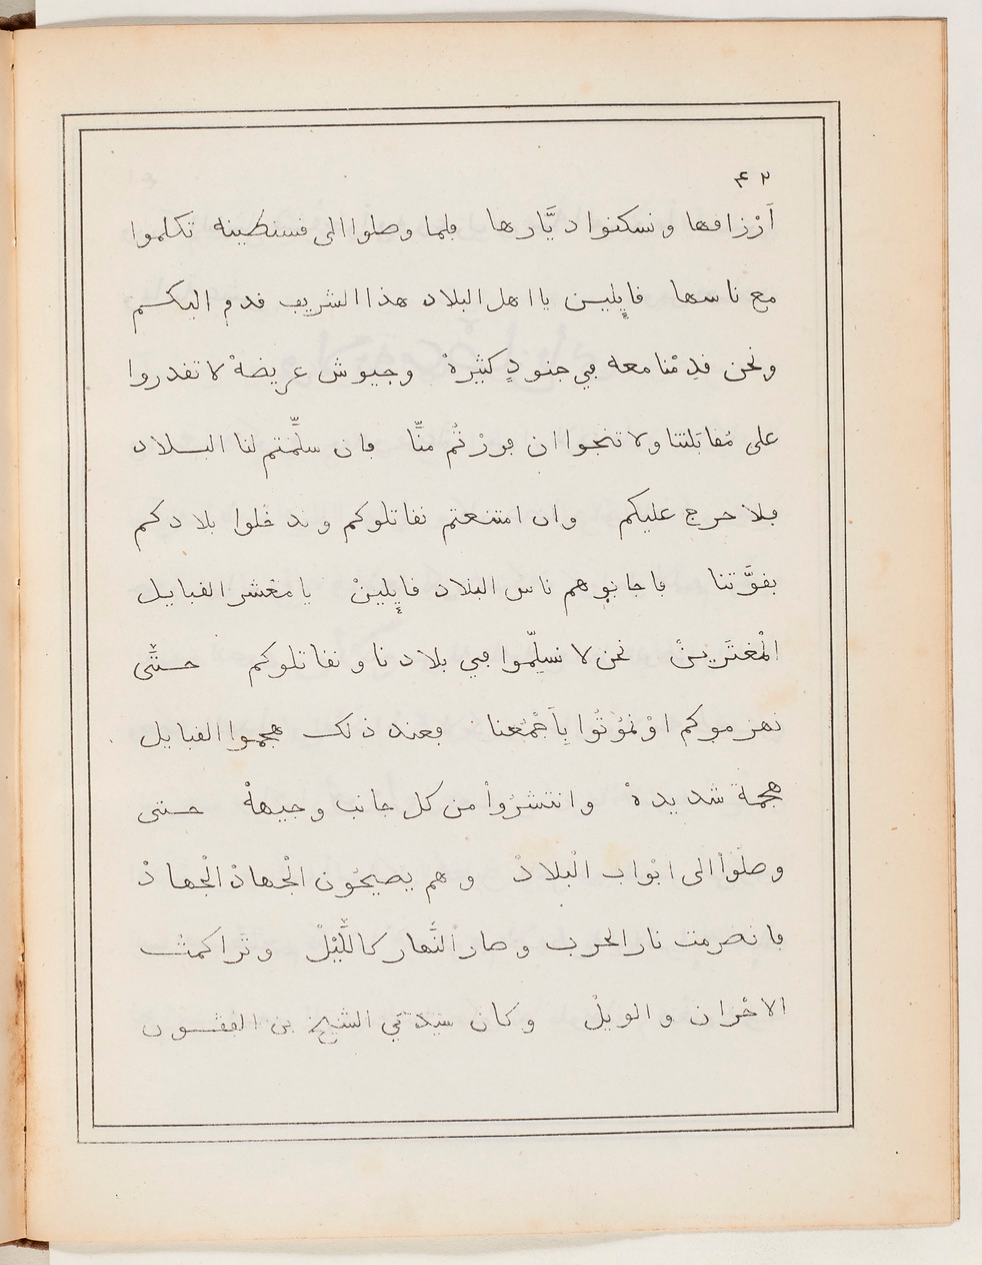 ٤٢
أَرْزاقها ونسكنوا ديَّارها فلما وصلوا الى قسنطينه تكلموا
مع ناسها قايلين يا اهل البلاد هذا الشريف قدم اليكم
ونحن قدِمْنا معه في جنودٍ كثيرة وجيوش عريضةْ لا تقدروا
على مُقابَلتنا ولا تنجوا ان فررْتُم منَّا فان سلَّمتم لنا البلاد
فلا حرج عليكم وان امتنعتم نقاتلوكم وندخلوا بلادكم
بقوَّتنا فاجابوهم ناس البلاد قايلينْ يا معْشر القبايل
الْمغتَرينْ نحن لا نسلِّموا في بلادنا ونقاتلوكم حتَّى
نهزموكم اوْ نمُوتُوا بِأَجْمَعنا فعند ذلك هجموا القبايل
هجمة شديدةْ وانتشرُواْ من كل جانب وجيهةْ حتى
وصلُواْ الى ابْواب الْبلادْ وهم يصيحُون الْجهادْ الْجهادْ
فانصرمت نار الحرب وصار النَّهار كاللَّيْلْ وتراكمتْ
الاحْزان والويلْ وكان سيدي الشيخ بن الفقون